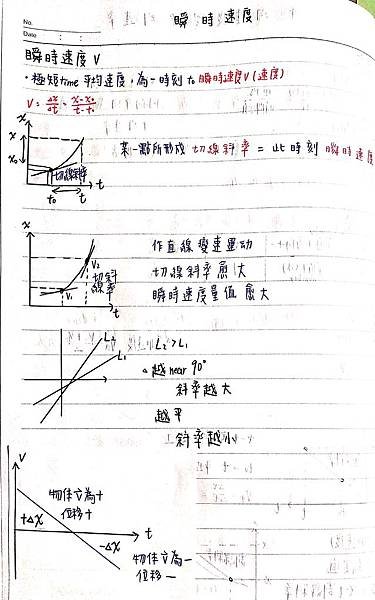 瞬時速度
No.
Date
瞬時速度 V
・極短time 平均速度,為一時刻 to 瞬時速度V(速度)
V = Δx/Δt = x-x₀/t-t₀
x
x
x₀
切線斜率
t₀ t
t
某一點所形成 切線斜率 = 此時刻 瞬時速度
x
V₂
V₁
切斜
線率
t
作直線變速運動
切線斜率愈大
瞬時速度量值愈大
L₂
L₁
L₂>L₁
越near 90°
斜率越大
越平
斜率越小
V
物体V為+
位移+
+Δx
t
-Δx
物体V為-
位移-